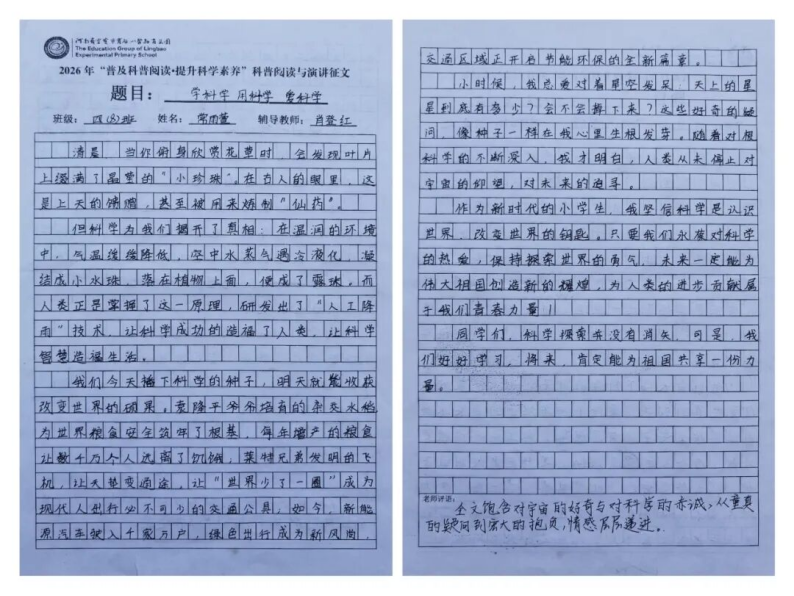 The Education Group of Lingbao
Experimental Primary School
2026年“普及科普阅读·提升科学素养”科普阅读与演讲征文
题目: 学科学 用科学 爱科学
班级: 四(8)班 姓名: 常雨萱 辅导教师: 肖登红
清晨,当你俯身欣赏花草时,会发现叶片
上洒满了晶莹的“小珍珠”。在古人的眼里,这
是上天的馈赠,甚至被用来炼制“仙药”。
但科学为我们揭开了真相:在湿润的环境
中,气温缓缓降低,空中水蒸气遇冷液化,凝
结成小水珠,落在植物上面,便成了露珠。而
人类正是掌握了这一原理,研发出了“人工降
雨”技术,让科学成功的造福了人类,让科学
智慧造福生活。
我们今天播下科学的种子,明天就能收获
改变世界的硕果。袁隆平爷爷培育的杂交水稻
为世界粮食安全筑牢了根基,每年增产的粮食
让数千万个人远离了饥饿,莱特兄弟发明的飞
机,让天堑变通途,让“世界少了一圈”成为
现代人出行必不可少的交通公具,如今,新能
源汽车驶入千家万户,绿色出行成为新风尚,
交通区域正开启节能环保的全新篇章。
小时候,我总爱对着星空发呆,天上的星
星到底有多少?会不会掉下来?这些好奇的疑
问,像种子一样在我心里生根发芽。随着对
科学的不断深入,我才明白,人类从未停止对
宇宙的仰望,对未来的追寻。
作为新时代的小学生,我坚信科学是认识
世界、改变世界的钥匙。只要我们永葆对科学
的热爱,保持探索世界的勇气,未来一定能为
伟大祖国创造新的辉煌,为人类的进步贡献属
于我们青春力量!
同学们,科学探索并没有消失,可是,我
们好好学习,将来,肯定能为祖国共享一份力
量。
老师评语:
全文饱含对宇宙的好奇与对科学的赤诚,从童真
的疑问到宏大的抱负,情感层层递进。